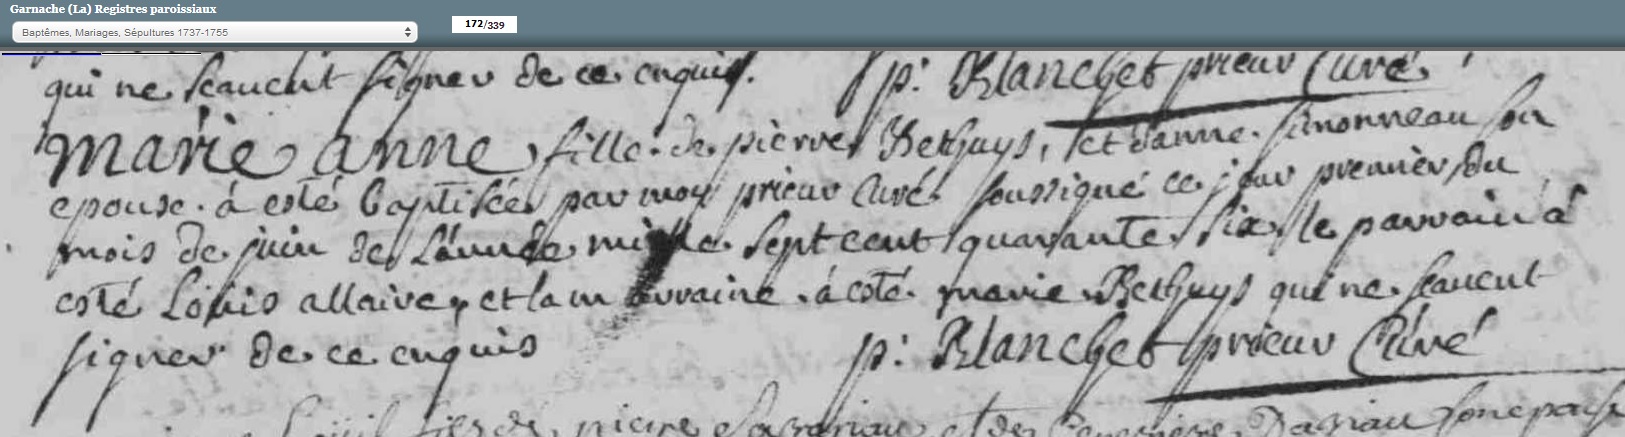 Garnache (La) Registres paroissiaux
Baptêmes, Mariages, Sépultures 1737-1755
172/339
qui ne scauent signer de ce enquis. p: Blanchet prieur Curé
marie anne fille de pierre Bethuys, et d'anne simonneau son
epouse. à esté baptisée par moy prieur Curé soussigné ce jour premier du
mois de juin de L'année mille sept cent quarante six le parrain à
esté Louis allaire, et la marraine à esté marie Bethuys qui ne scauent
signer de ce enquis p: Blanchet prieur Curé
fils de pierre et de